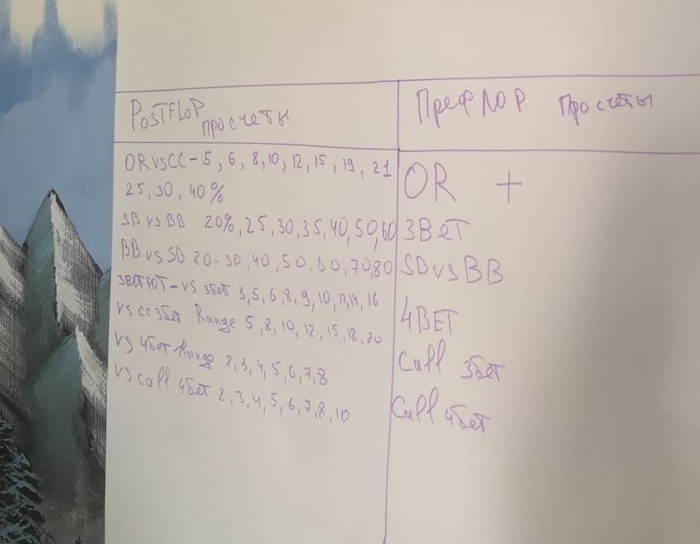 PostFloP просчеты
ORvsCC - 5, 6, 8, 10, 12, 15, 19, 21
25, 30, 40%
SB vs BB 20%, 25, 30, 35, 40, 50, 60
BB vs SB 20-30, 40, 50, 60, 70, 80
3BET POT - vs 3бет 3, 5, 6, 8, 9, 10, 12, 14, 16
vs cc 3бет Range 5, 8, 10, 12, 15, 18, 20
vs 4бет Range 2, 3, 4, 5, 6, 7, 8
vs call 4бет 2, 3, 4, 5, 6, 7, 8, 10
ПрефЛОР просчеты
OR +
3Bет
SB vs BB
4BET
Call 3бет
Call 4бет